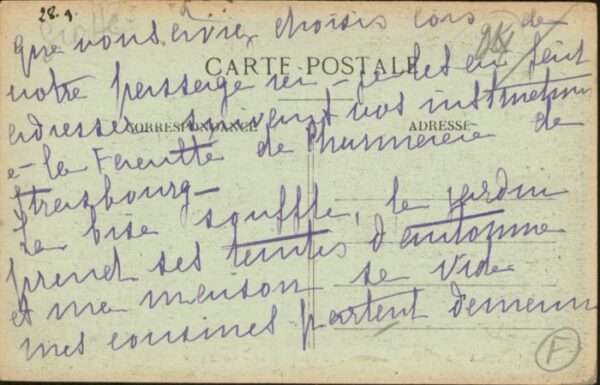 28.9
que vous aviez choisis lors de
CARTE POSTALE
votre passage ici - je les en fait
adresser suivant vos instructions
CORRESPONDANCE
ADRESSE
à la Faculté de Pharmacie de
Strasbourg -
La bise souffle, le jardin
prend ses teintes d'automne
et ma maison se vide
mes cousines partent demain
F